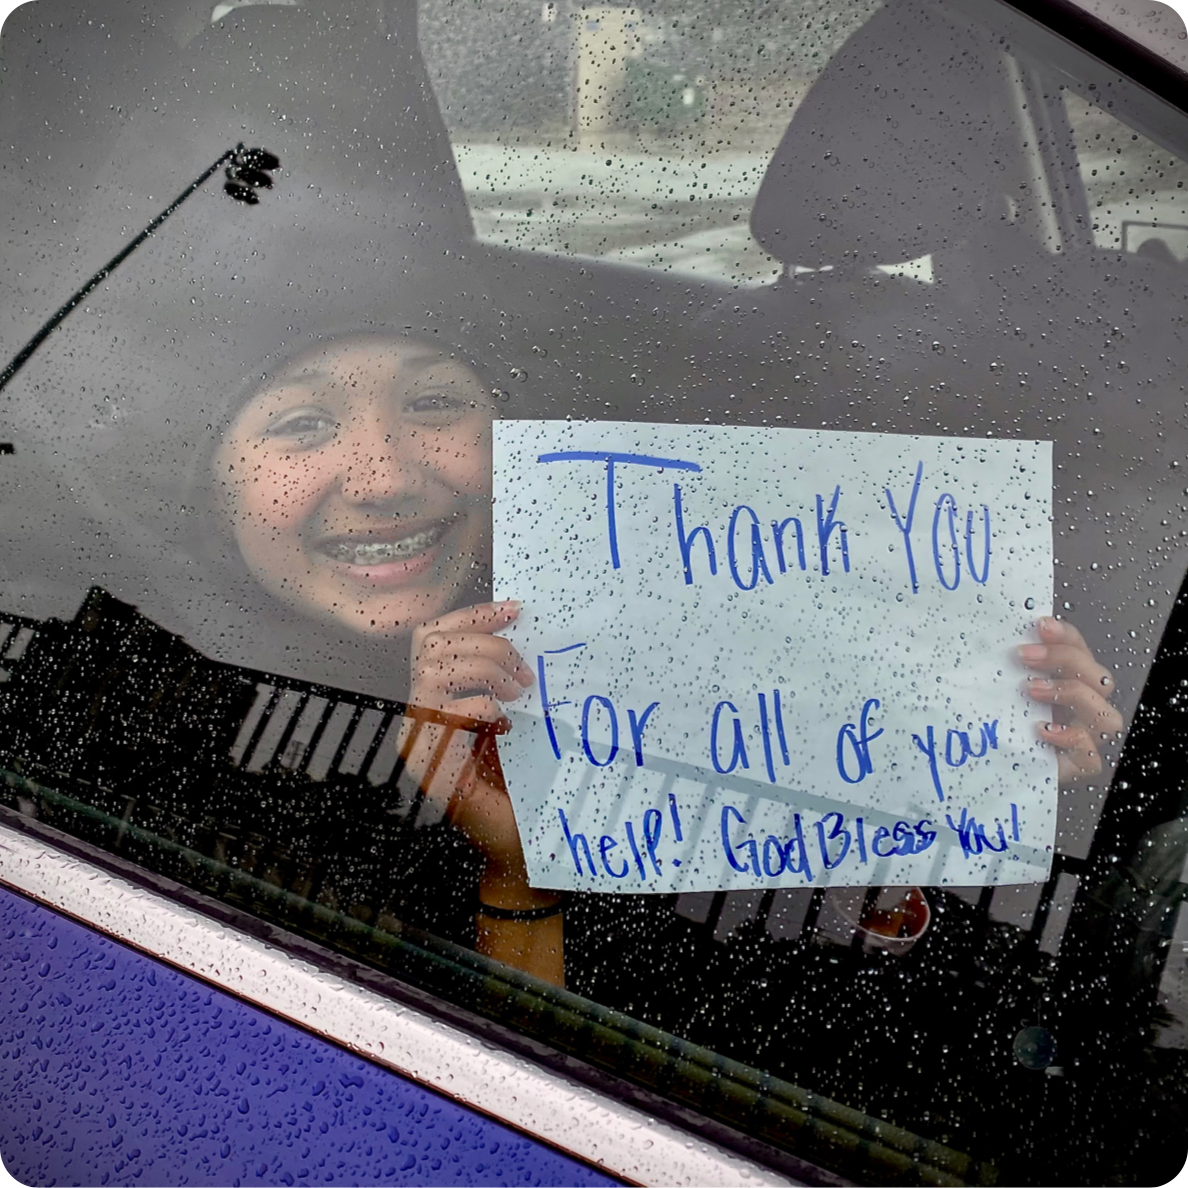 Thank You
For all of your
help! God Bless You!